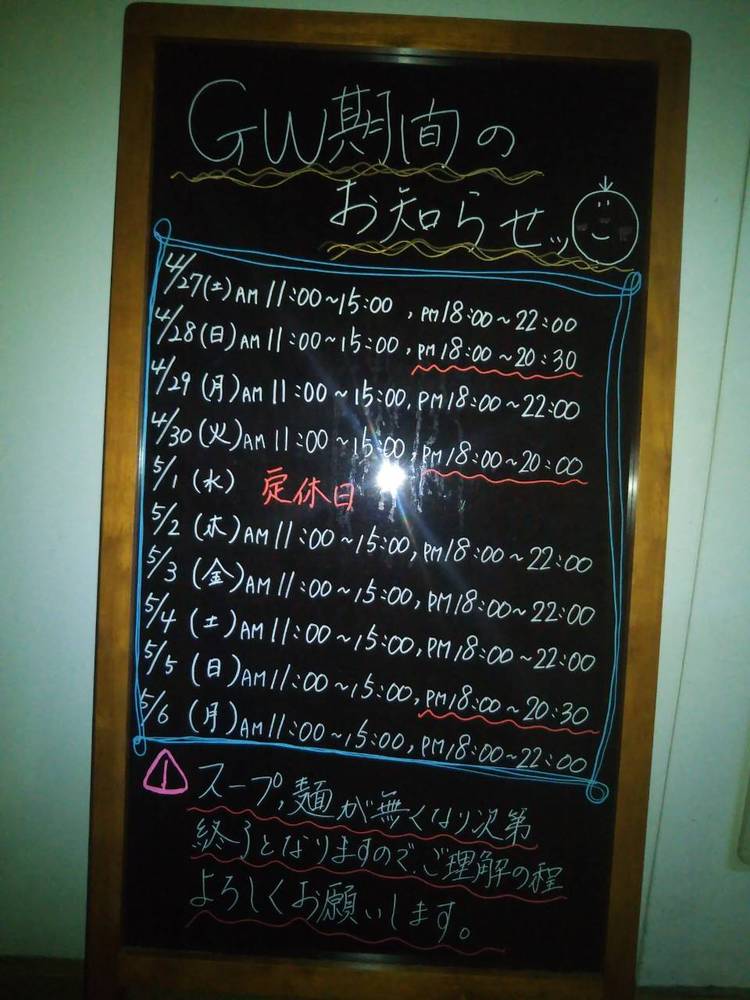 GW期間の
お知らせッ
4/27(土)AM 11:00~15:00 , PM18:00~22:00
4/28(日)AM 11:00~15:00, PM18:00~20:30
4/29(月)AM 11:00~15:00, PM18:00~22:00
4/30(火)AM 11:00~15:00, PM18:00~20:00
5/1(水) 定休日
5/2(木)AM11:00~15:00, PM18:00~22:00
5/3(金)AM11:00~15:00, PM18:00~22:00
5/4(土)AM11:00~15:00, PM18:00~22:00
5/5(日)AM11:00~15:00, PM18:00~20:30
5/6(月)AM11:00~15:00, PM18:00~22:00
! スープ,麺が無くなり次第
終了となりますので、ご理解の程
よろしくお願いします。